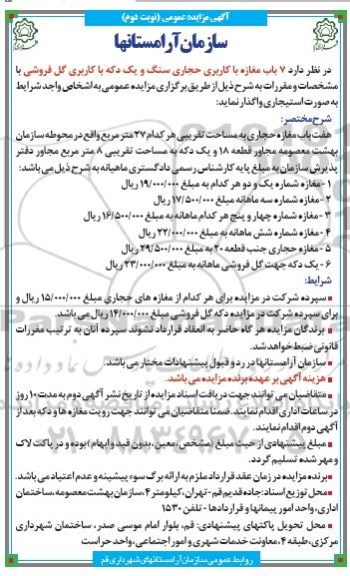 آگهی مزایده عمومی (نوبت دوم)
سازمان آرامستانها
در نظر دارد ۷ باب مغازه با کاربری حجاری سنگ و یک دکه با کاربری گل فروشی با
مشخصات و مقررات به شرح ذیل از طریق برگزاری مزایده عمومی به اشخاص واجد شرایط
به صورت استیجاری واگذار نماید:
شرح مختصر:
هفت باب مغازه حجاری به مساحت تقریبی هر کدام ۲۷ متر مربع واقع در محوطه سازمان
بهشت معصومه مجاور قطعه ۱۸ و یک دکه به مساحت تقریبی ۸ متر مربع مجاور دفتر
پذیرش سازمان به مبلغ پایه کارشناس رسمی دادگستری ماهیانه به شرح ذیل می باشد:
۱ - مغازه شماره یک و دو هر کدام به مبلغ ۱۹/۰۰۰/۰۰۰ ریال
۲ - مغازه شماره سه ماهانه به مبلغ ۱۷/۵۰۰/۰۰۰ ریال
۳ - مغازه شماره چهار و پنج هر کدام ماهانه به مبلغ ۱۶/۵۰۰/۰۰۰ ریال
۴ - مغازه شماره شش ماهانه به مبلغ ۲۲/۰۰۰/۰۰۰ ریال
۵ - مغازه حجاری جنب قطعه ۲۰ به مبلغ ۲۹/۵۰۰/۰۰۰ ریال
۶ - یک دکه جهت گل فروشی ماهانه به مبلغ ۲۳/۰۰۰/۰۰۰ ریال
شرایط:
سپرده شرکت در مزایده برای هر کدام از مغازه های حجاری مبلغ ۱۵/۰۰۰/۰۰۰ ریال و
برای سپرده شرکت در مزایده دکه گل فروشی مبلغ ۱۴/۰۰۰/۰۰۰ ریال می باشد.
برندگان مزایده هر گاه حاضر به انعقاد قرارداد نشوند سپرده آنان به ترتیب مقررات
قانونی ضبط خواهد شد.
سازمان آرامستانها در رد و قبول پیشنهادات مختار می باشد.
هزینه آگهی بر عهده برنده مزایده می باشد.
متقاضیان می توانند جهت دریافت اسناد مزایده از تاریخ نشر آگهی دوم به مدت ۱۰ روز
در ساعات اداری اقدام نمایند. ضمنا متقاضیان می توانند جهت رویت مغازه ها و دکه بعد از
آگهی دوم اقدام نمایند.
مبلغ پیشنهادی از حیث مبلغ (مشخص، معین، بدون قید و ابهام) بوده و در پاکت لاک
و مهر شده تسلیم گردد.
برنده مزایده در زمان عقد قرارداد ملزم به ارائه برگ سوء پیشینه و عدم اعتیاد می باشد.
محل توزیع اسناد: جاده قدیم قم - تهران، کیلومتر ۴، سازمان بهشت معصومه، ساختمان
اداری، واحد امور پیمانها و قراردادها - تلفن ۱۵۳۰
محل تحویل پاکتهای پیشنهادی: قم، بلوار امام موسی صدر، ساختمان شهرداری
مرکزی، طبقه ۴، معاونت خدمات شهری و امور اجتماعی، واحد حراست
روابط عمومی سازمان آرامستانهای شهرداری قم